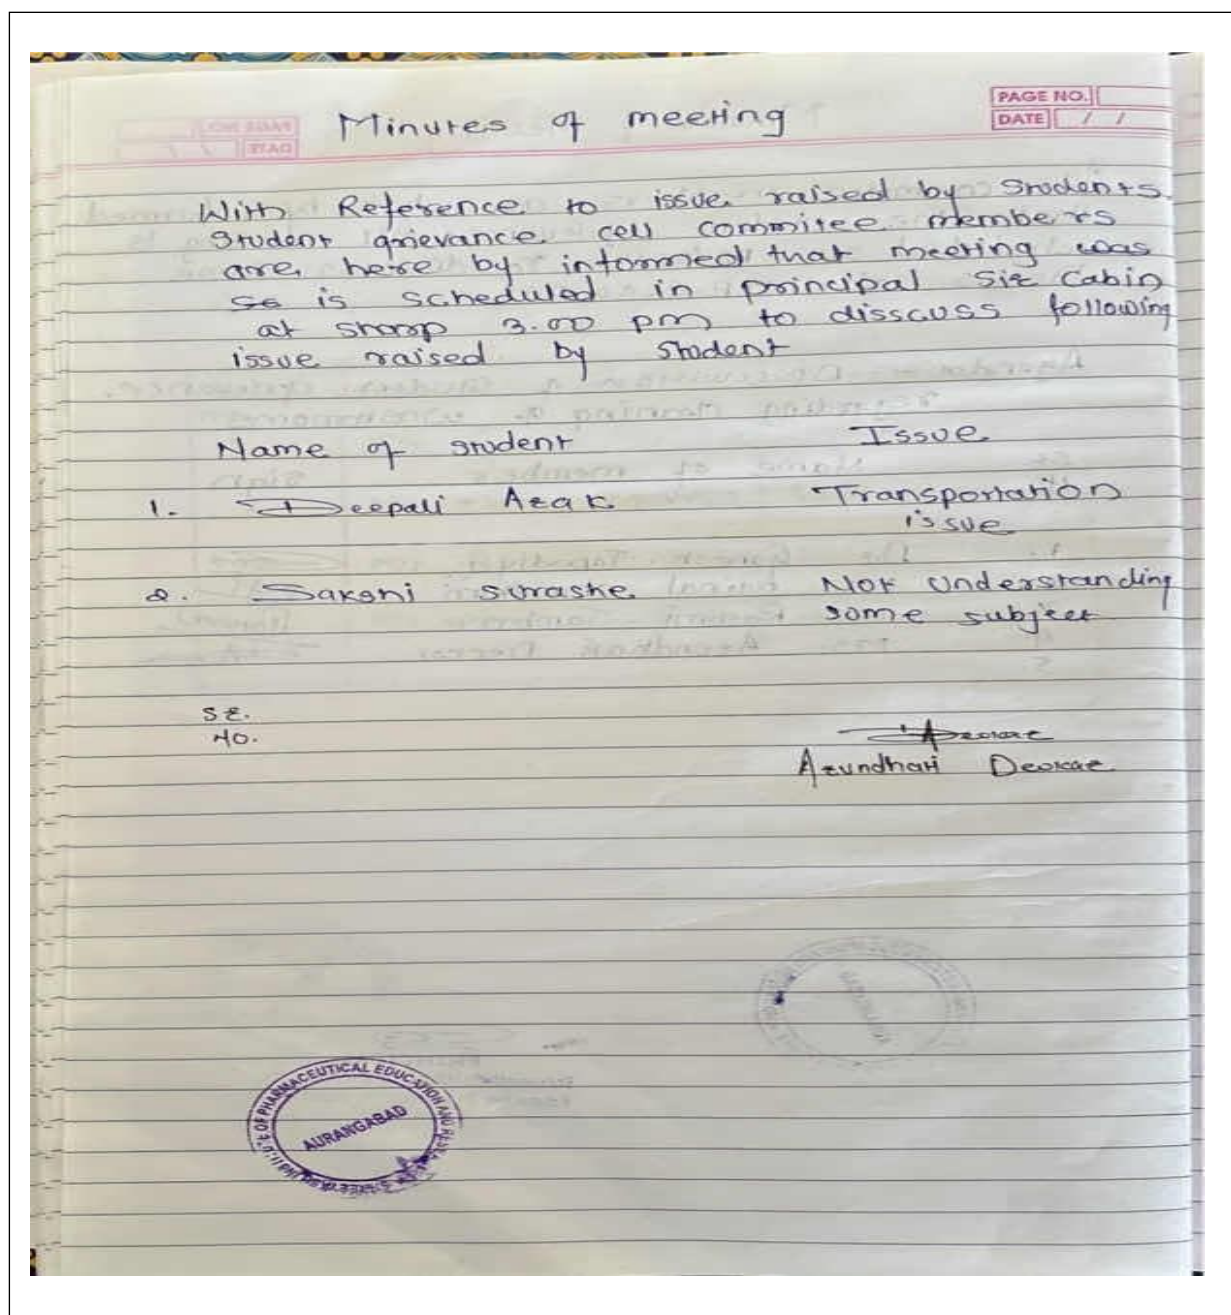 PAGE NO.
DATE / /
Minutes of meeting
With Reference to issue raised by Students.
Student grievance cell commitee members
are here by informed that meeting was
se is scheduled in principal Sir Cabin
at sharp 3.00 pm to disscuss following
issue raised by Student
Name of student Issue
1. Deepali Azak Transportation
issue
2. Sakshi Surashe Not Understanding
some subject
SR.
NO.
Arundhati Deokar
OF PHARMACEUTICAL EDUCATION AND
AURANGABAD